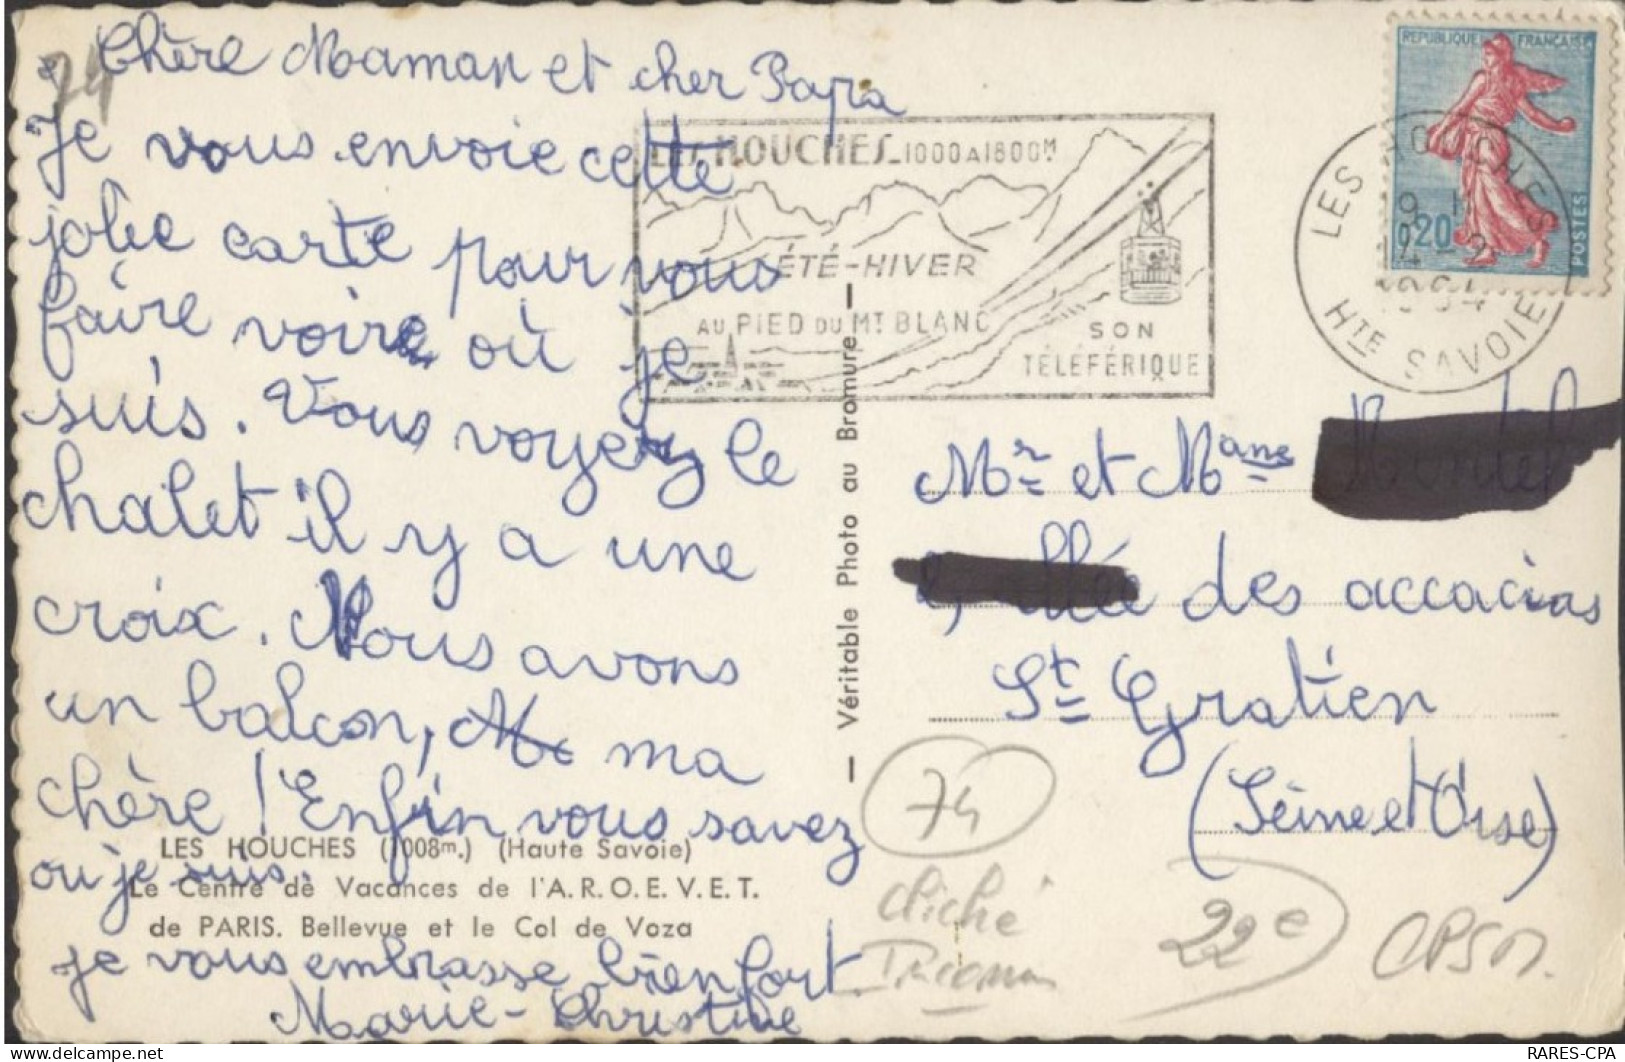 74
Chère Maman et cher Papa
Je vous envoie cette
jolie carte pour vous
faire voir où je
suis. Vous voyez le
chalet il y a une
croix. Nous avons
un balcon, ma
chère ! Enfin vous savez
où je suis.
je vous embrasse bien fort.
Marie-Christine
LES HOUCHES (1008m.) (Haute Savoie)
Le Centre de Vacances de l'A.R.O.E.V.E.T.
de PARIS. Bellevue et le Col de Voza
LES HOUCHES-1000A1800M
ÉTÉ-HIVER
AU PIED DU MT BLANC
SON
TÉLÉFÉRIQUE
Véritable Photo au Bromure
REPUBLIQUE FRANÇAISE
0,20
POSTES
LES HOUCHES
HTE SAVOIE
1964
Mr et Mme
allée des accacias
St Gratien
(Seine et Oise)
74
cliché
22e
CPSM.
RARES-CPA